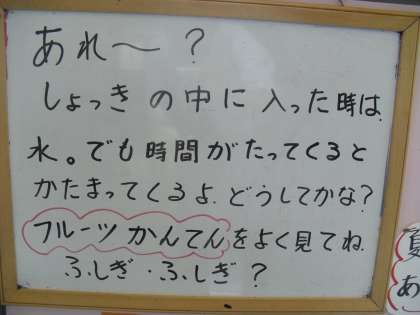 あれ～?
しょっきの中に入った時は、
水。でも時間がたってくると
かたまってくるよ。どうしてかな?
フルーツかんてんをよく見てね。
ふしぎ・ふしぎ?
夏
あ